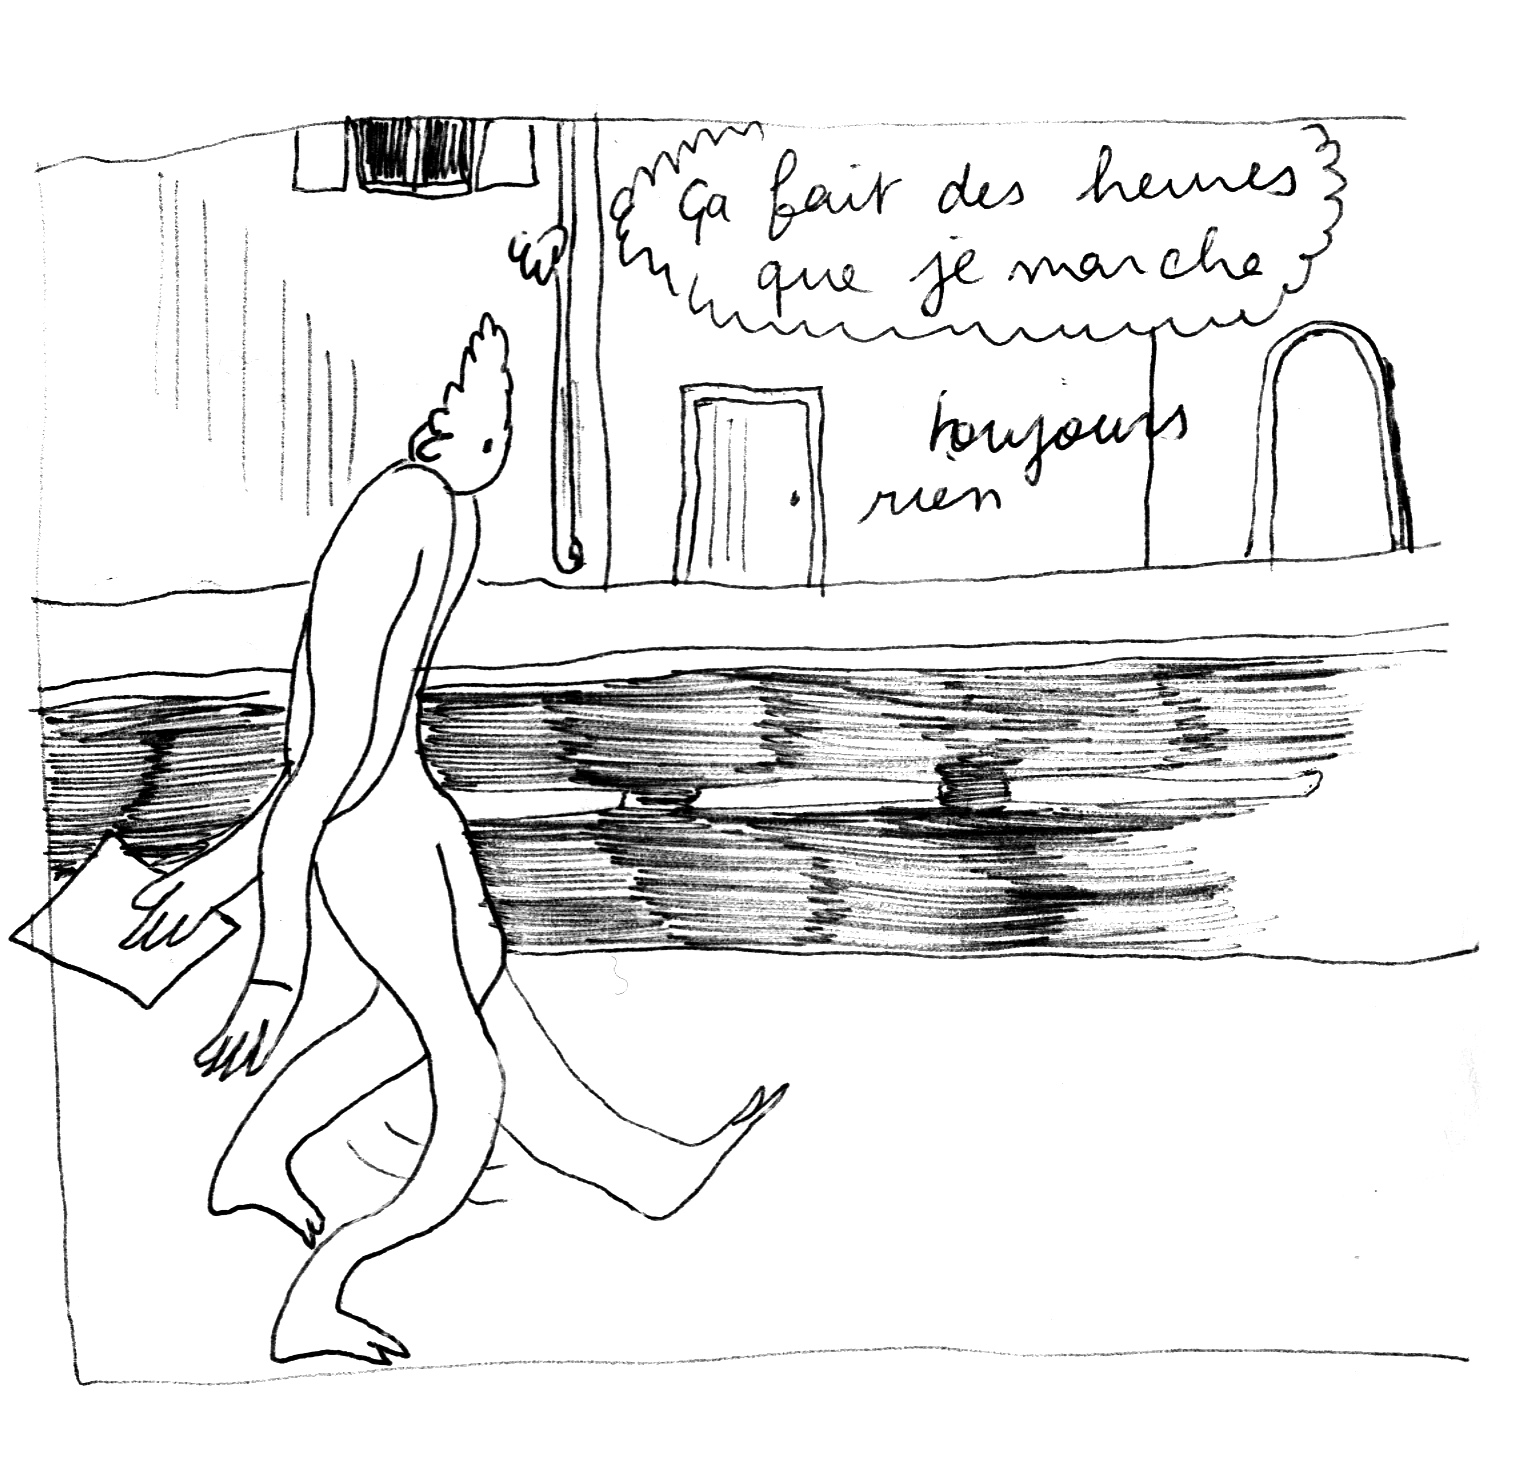 Ça fait des heures
que je marche
toujours
rien